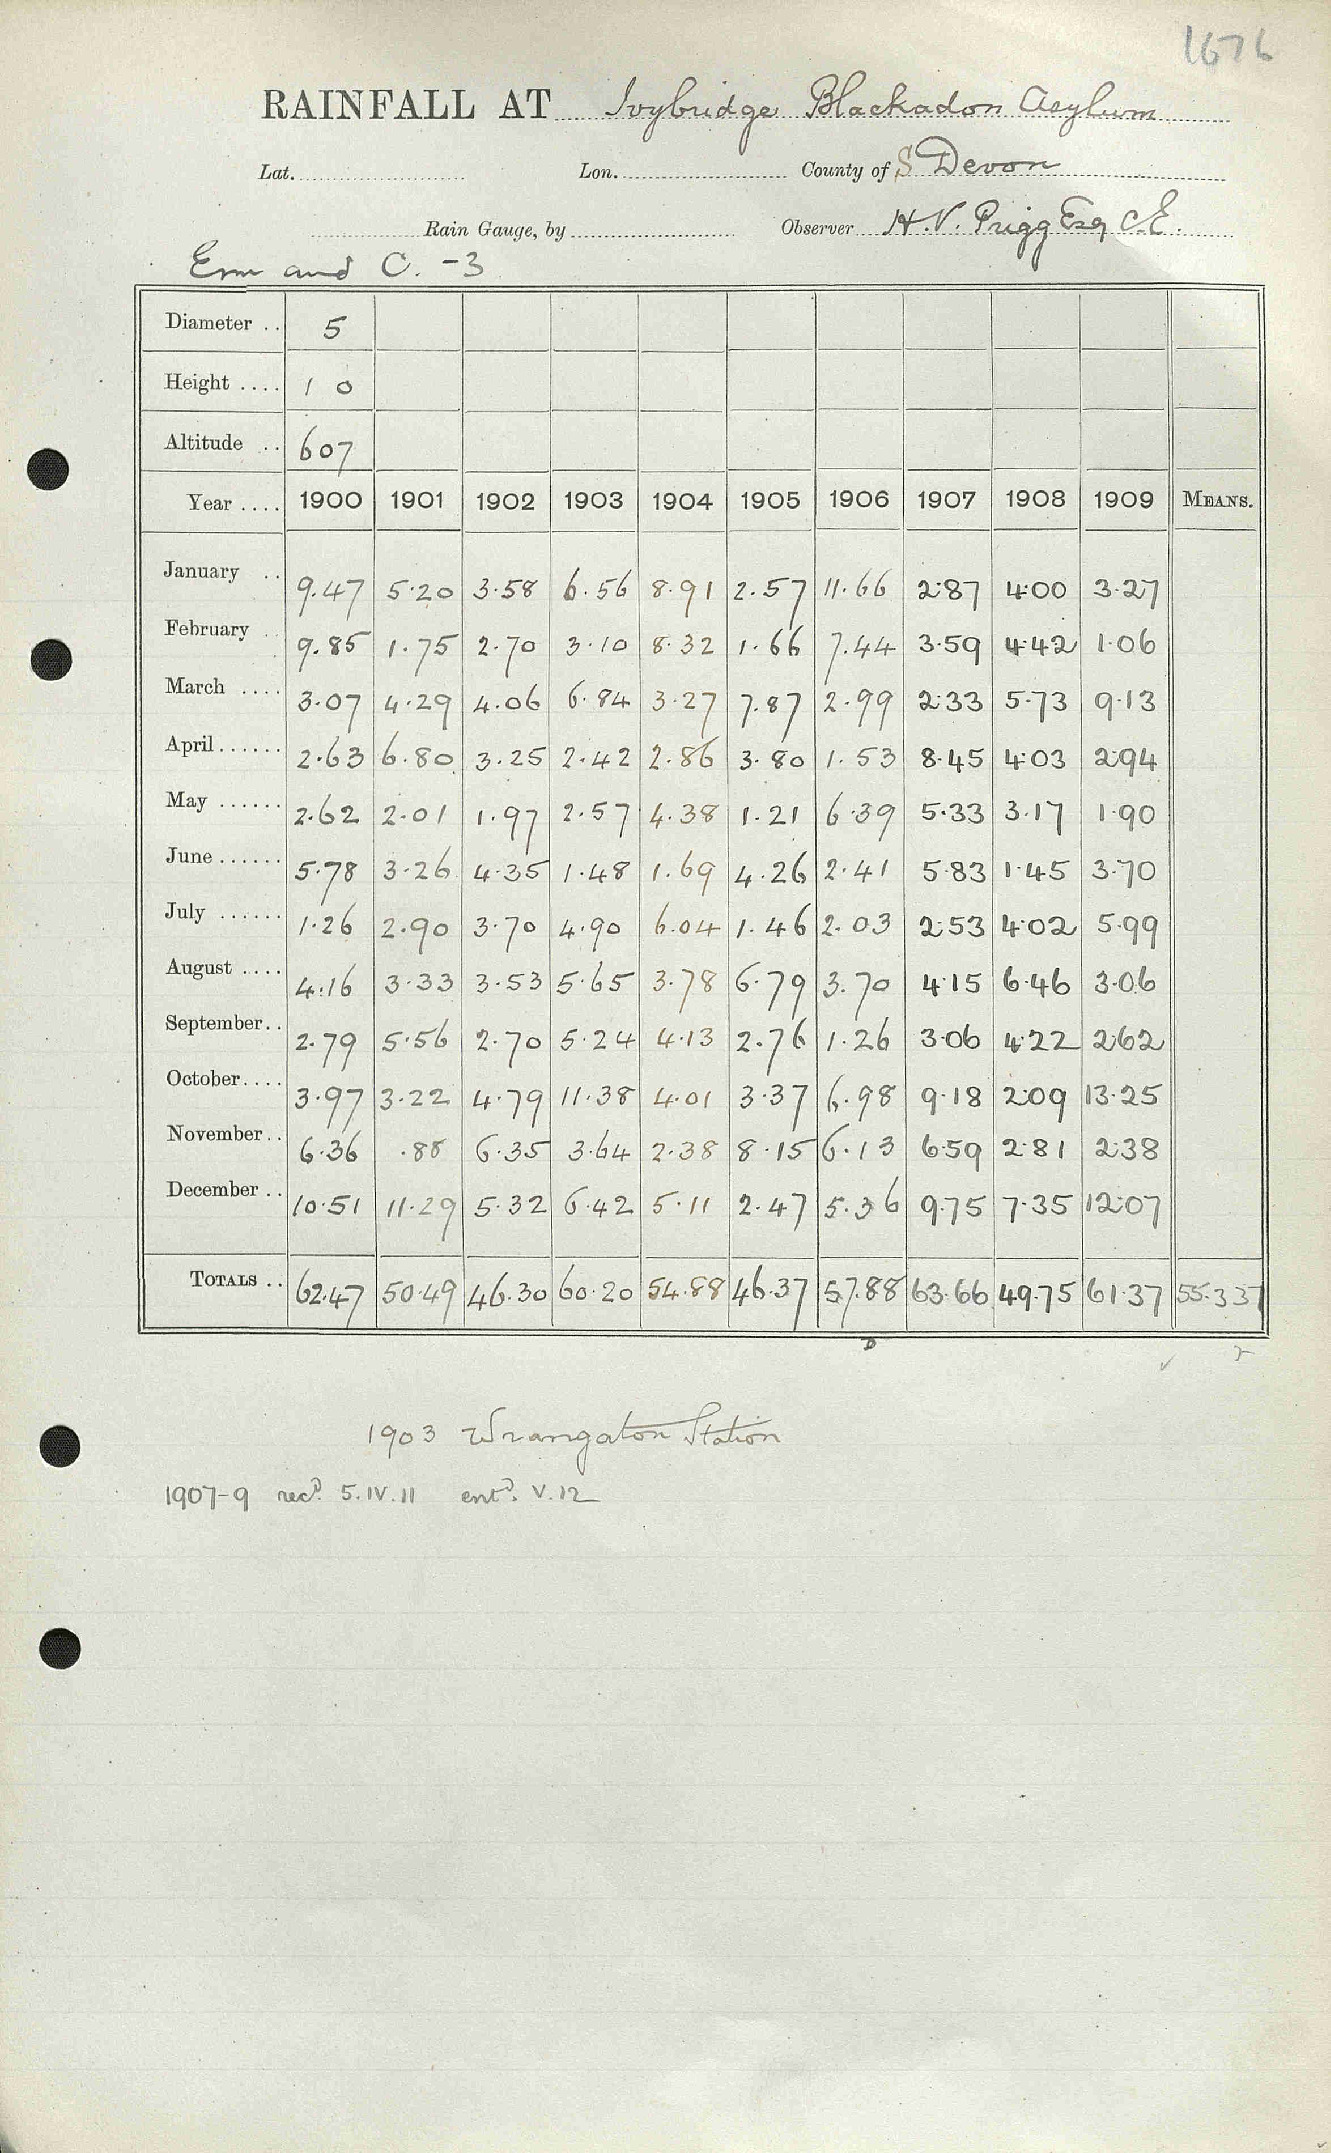 1676
RAINFALL AT Ivybridge Blackadon Asylum
Lat. Lon. County of S Devon
Rain Gauge, by Observer H.V. Prigg Esq C.E.
Erm and C. -3
Diameter .. 5
Height .... 1 0
Altitude .. 607
Year .... 1900 1901 1902 1903 1904 1905 1906 1907 1908 1909 MEANS.
January .. 9.47 5.20 3.58 6.56 8.91 2.57 11.66 2.87 4.00 3.27
February .. 9.85 1.75 2.70 3.10 8.32 1.66 7.44 3.59 4.42 1.06
March .... 3.07 4.29 4.06 6.84 3.27 7.87 2.99 2.33 5.73 9.13
April...... 2.63 6.80 3.25 2.42 2.86 3.80 1.53 8.45 4.03 2.94
May ...... 2.62 2.01 1.97 2.57 4.38 1.21 6.39 5.33 3.17 1.90
June...... 5.78 3.26 4.35 1.48 1.69 4.26 2.41 5.83 1.45 3.70
July ...... 1.26 2.90 3.70 4.90 6.04 1.46 2.03 2.53 4.02 5.99
August .... 4.16 3.33 3.53 5.65 3.78 6.79 3.70 4.15 6.46 3.06
September.. 2.79 5.56 2.70 5.24 4.13 2.76 1.26 3.06 4.22 2.62
October.... 3.97 3.22 4.79 11.38 4.01 3.37 6.98 9.18 2.09 13.25
November.. 6.36 .88 6.35 3.64 2.38 8.15 6.13 6.59 2.81 2.38
December .. 10.51 11.29 5.32 6.42 5.11 2.47 5.36 9.75 7.35 12.07
TOTALS .. 62.47 50.49 46.30 60.20 54.88 46.37 57.88 63.66 49.75 61.37 55.337
D
1903 Wrangaton Station
1907-9 recd. 5.IV.11 entd. V.12